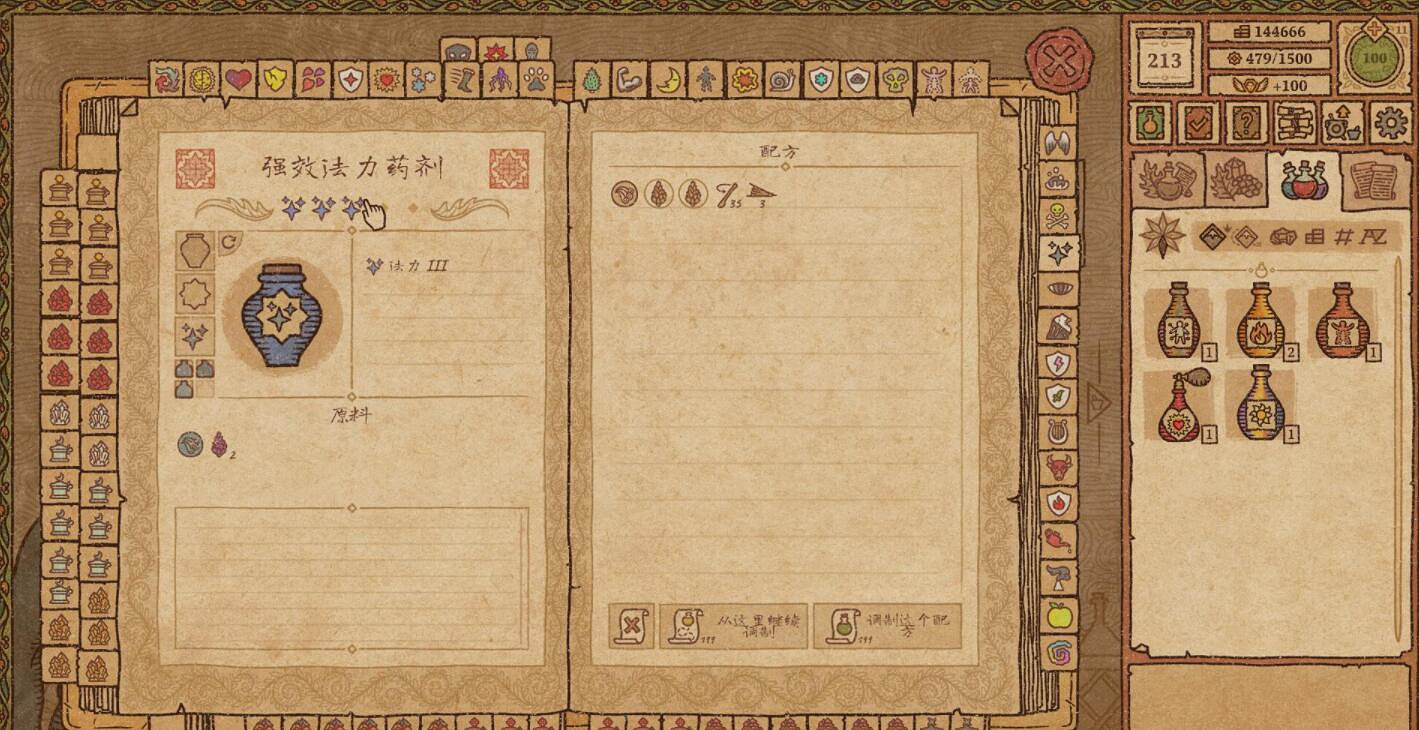 144666
11
213
479/1500
100
+100
配方
强效法力药剂
35
3
法力 III
# AZ
1
2
1
原料
1
1
2
从这里继续
调制
199
调制这个配
方
199